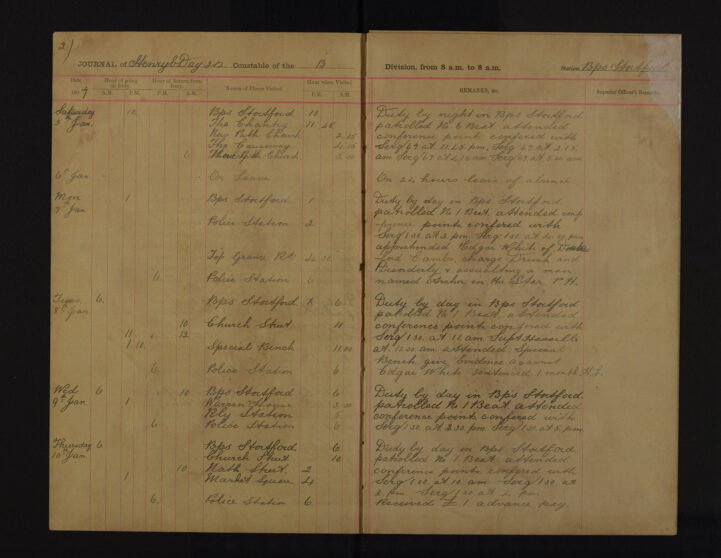 2)
JOURNAL of Henry E Day 212 Constable of the B Division, from 8 a.m. to 8 a.m. Station Bps Stortford
Date, 190 7
Hour of going on Duty. A.M. P.M.
Hour of Return from Duty. P.M. A.M.
Names of Places Visited.
Hour when Visited P.M. A.M.
REMARKS, &c.
Superior Officer's Remarks.
Saturday 10 Bps Stortford 10 Duty by night in Bps Stortford
5th Jan. The Chantry 11.45 patrolled No 6 Beat attended
Church 2.15 conference points confered with
The Causeway 4.15 Serg 69 at 11.45 pm, Serg 69 at 2.15
6 Church am Serg 69 at 4.15 am Serg 69 at am
6th Jan On Leave On 24 hours leave of absence
Mon 1 Bps Stortford 1 Duty by day in Bps Stortford
7th Jan patrolled No 1 Beat attended conf
Police Station 2 erence points confered with
Serg 130 at 2 pm. Serg 130 at 4.30 pm
apprehended Edgar White of
Top Grange Rd 4.30 Cambs, charge Drunk and
Disorderly & assaulting a man
6 Police Station 6 named in the Star P.H.
Tues 6 Bps Stortford 6 Duty by day in Bps Stortford
8th Jan patrolled No 1 Beat attended
10 Church Street 11 conference points confered with
11 12 Serg 130 at 11 am Supt
1.10 Special Bench 11.00 at attended Special
Bench give Evidence against
6 Police Station 6 Edgar White sentenced 1 month H.L.
Wed 6 10 Bps Stortford 6 Duty by day in Bps Stortford
9th Jan 1 Warren House 2.30 patrolled No 1 Beat attended
Station 5 conference points confered with
6 Police Station 6 Serg 130 at 2.30 pm Serg 130 at 5 pm.
Thursday 6 Bps Stortford 6 Duty by day in Bps Stortford
10th Jan Church Street 10 patrolled No 1 Beat attended
10 North Street 2 conference points confered with
1 Market Square 4 Serg 130 at 10 am Serg 130 at
2 pm Serg 130 at 4 pm
6 Police Station 6 Received £1 advance pay.